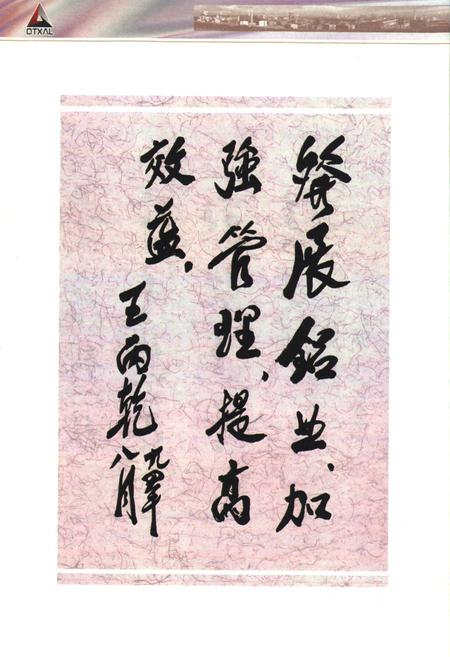 DTXAL
發展鋁业、加
強管理、提高
效益。
王丙乾
九四年
八月